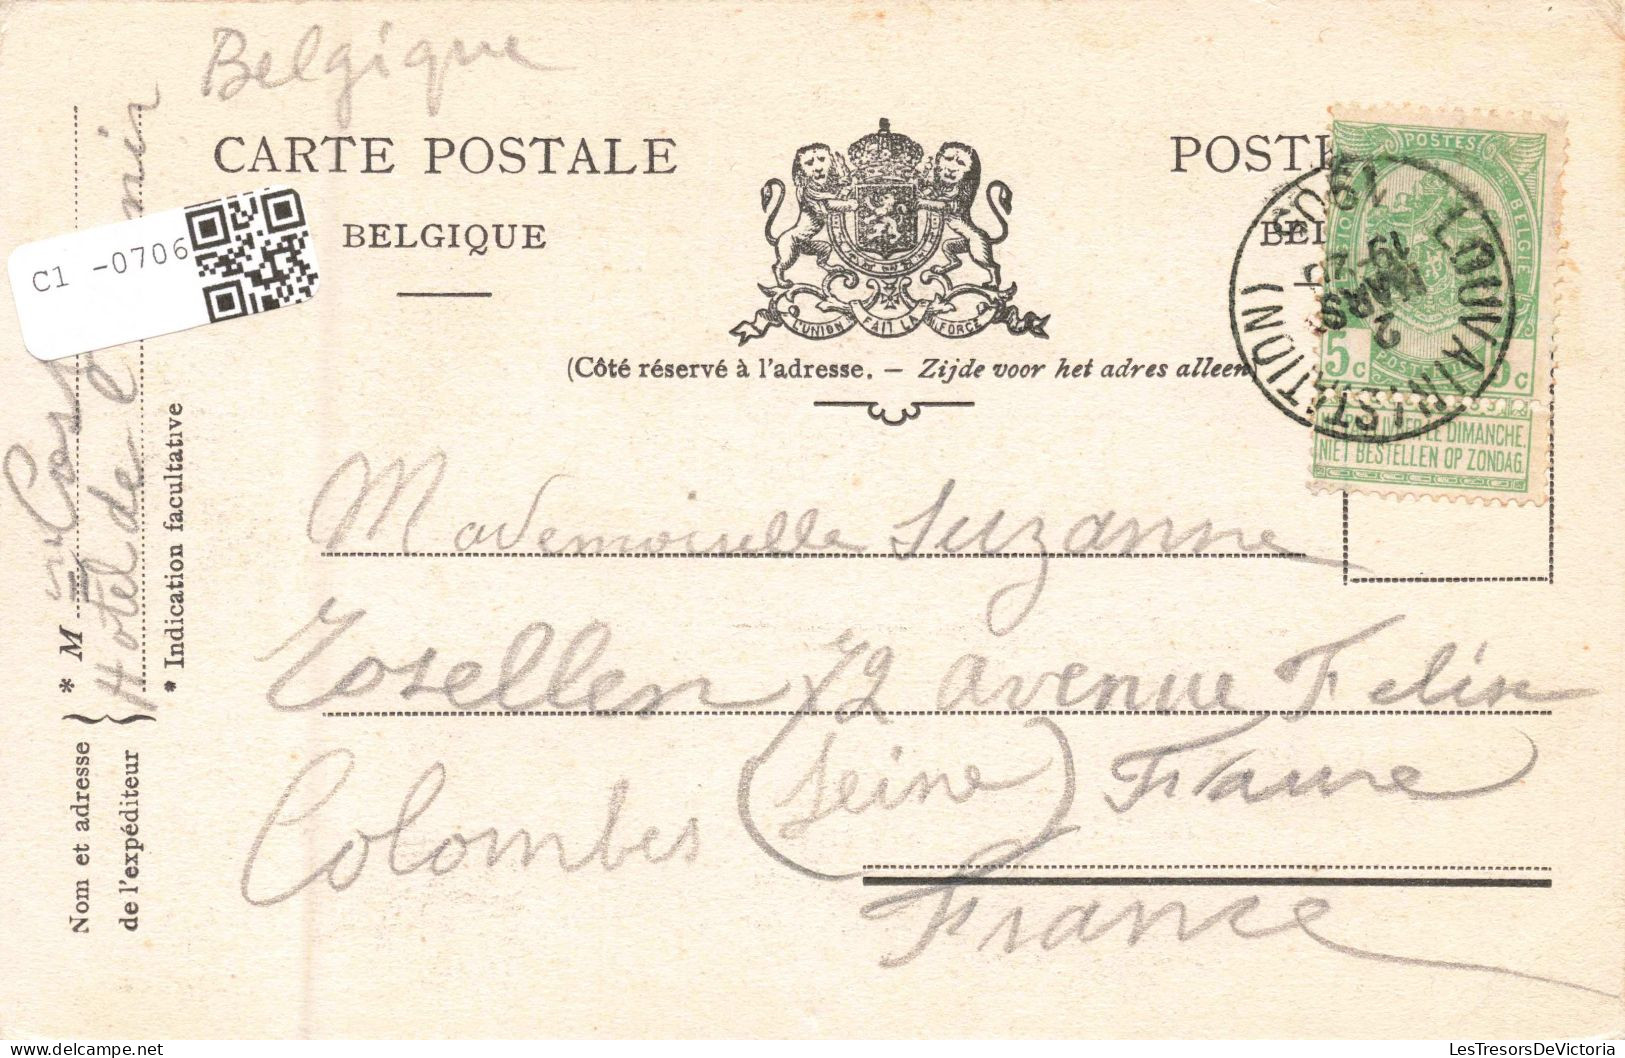 Belgique
CARTE POSTALE
BELGIQUE
L'UNION FAIT LA FORCE
POSTK
BEL
(Côté réservé à l'adresse. — Zijde voor het adres alleen
POSTES
BELGIE
5c 5c
POSTERIJEN
NE PAS LIVRER LE DIMANCHE.
NIET BESTELLEN OP ZONDAG.
LOUVAIN (STATION)
2
MARS
19-
1905
Mademoiselle Suzanne
Rosellen 72 avenue Felix
Colombes (Seine) Faure
France
Nom et adresse
de l'expéditeur
* M
Hotel de
* Indication facultative
C1 -0706
LesTresorsDeVictoria